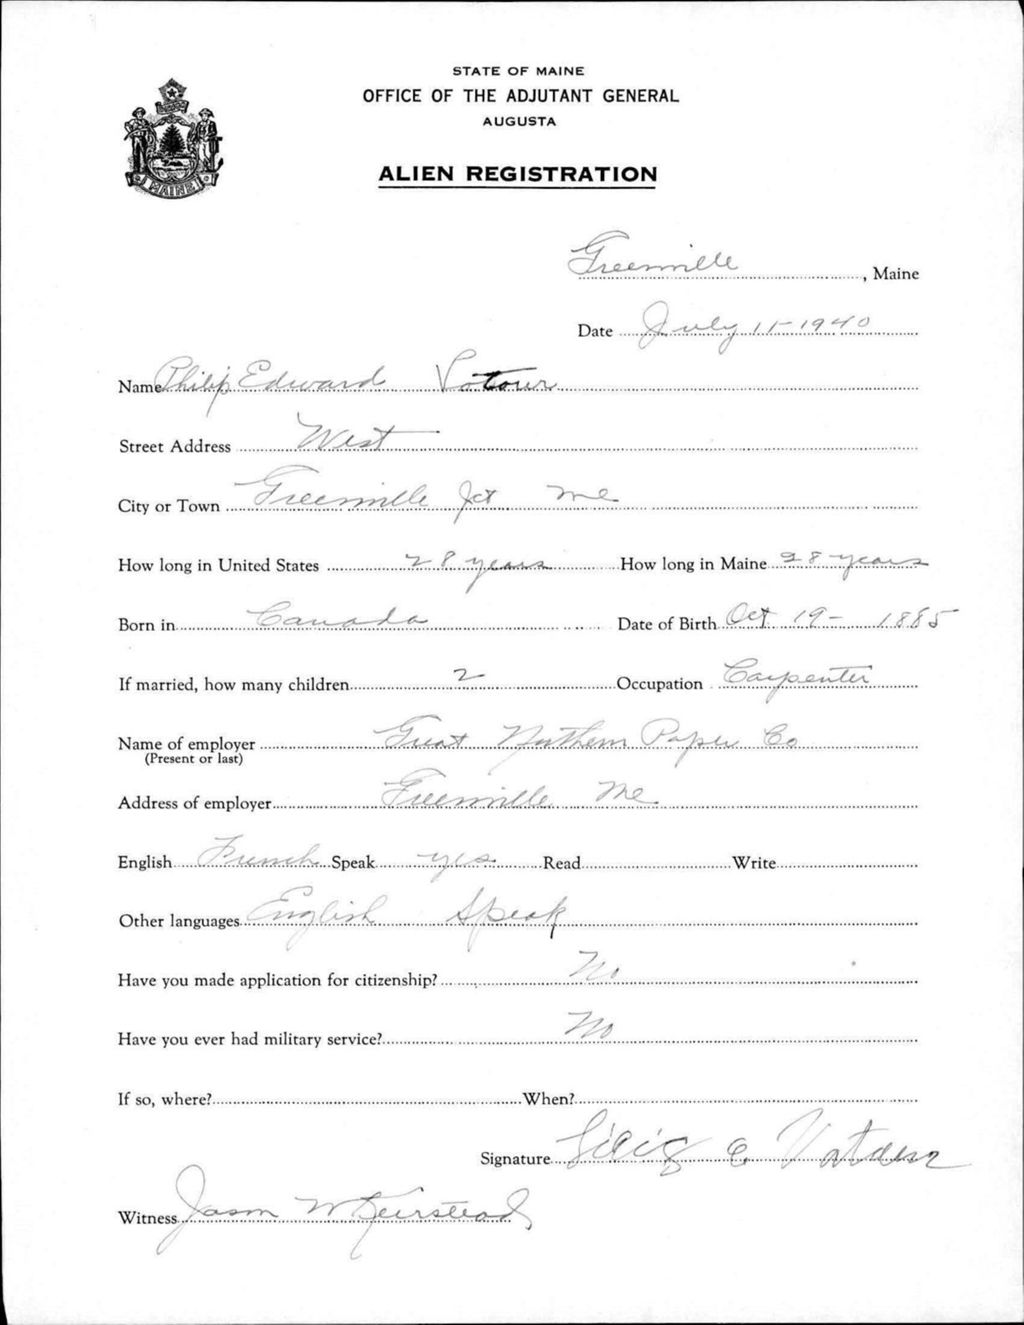 STATE OF MAINE
OFFICE OF THE ADJUTANT GENERAL
AUGUSTA
ALIEN REGISTRATION
MAINE
Greenville, Maine
Date July 11-1940
Name Philip Edward Votour
Street Address West
City or Town Greenville Jct Me
How long in United States 28 years How long in Maine 28 years
Born in Canada Date of Birth Oct 19- 1885
If married, how many children 2 Occupation Carpenter
Name of employer Great Northern Paper Co
(Present or last)
Address of employer Greenville Me
English French Speak yes Read Write
Other languages English Speak
Have you made application for citizenship? No
Have you ever had military service? No
If so, where? When?
Signature E
Witness Jason W Keirstead